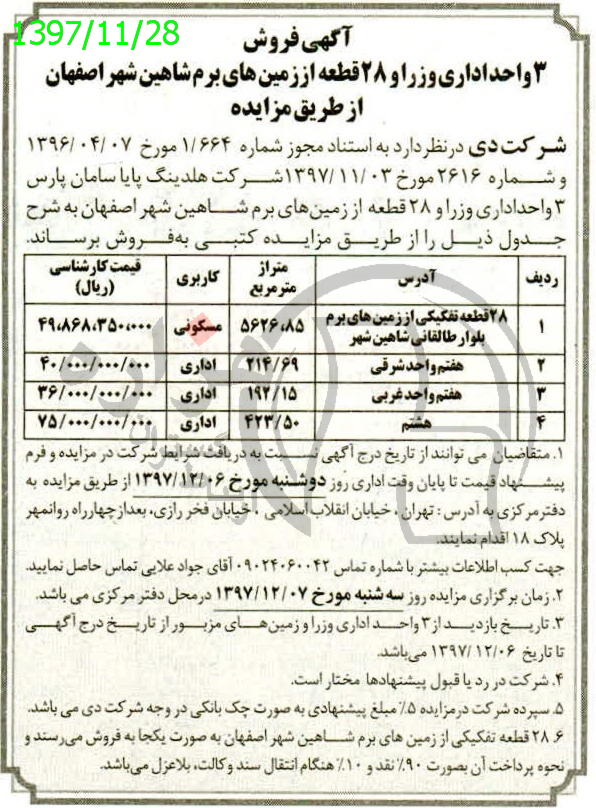 1397/11/28
آگهی فروش
۳ واحد اداری وزرا و ۲۸ قطعه از زمین های برم شاهین شهر اصفهان
از طریق مزایده
شرکت دی در نظر دارد به استناد مجوز شماره ۱/۶۶۴ مورخ ۱۳۹۶/۰۴/۰۷
و شماره ۲۶۱۶ مورخ ۱۳۹۷/۱۱/۰۳ شرکت هلدینگ پایا سامان پارس
۳ واحد اداری وزرا و ۲۸ قطعه از زمین‌های برم شاهین شهر اصفهان به شرح
جدول ذیل را از طریق مزایده کتبی به‌فروش برساند.
ردیف آدرس متراژ مترمربع کاربری قیمت کارشناسی (ریال)
۱ ۲۸ قطعه تفکیکی از زمین های برم بلوار طالقانی شاهین شهر ۵۶۲۶،۸۵ مسکونی ۴۹،۸۶۸،۳۵۰،۰۰۰
۲ هفتم واحد شرقی ۲۱۴/۶۹ اداری ۴۰/۰۰۰/۰۰۰/۰۰۰
۳ هفتم واحد غربی ۱۹۲/۱۵ اداری ۳۶/۰۰۰/۰۰۰/۰۰۰
۴ هشتم ۴۲۳/۵۰ اداری ۷۵/۰۰۰/۰۰۰/۰۰۰
۱. متقاضیان می توانند از تاریخ درج آگهی نسبت به دریافت شرایط شرکت در مزایده و فرم
پیشنهاد قیمت تا پایان وقت اداری روز دوشنبه مورخ ۱۳۹۷/۱۲/۰۶ از طریق مزایده به
دفتر مرکزی به آدرس : تهران ، خیابان انقلاب اسلامی ، خیابان فخر رازی، بعد از چهارراه روانمهر
پلاک ۱۸ اقدام نمایند.
جهت کسب اطلاعات بیشتر با شماره تماس ۰۹۰۲۴۰۶۰۰۴۲ آقای جواد علایی تماس حاصل نمایید.
۲. زمان برگزاری مزایده روز سه شنبه مورخ ۱۳۹۷/۱۲/۰۷ در محل دفتر مرکزی می باشد.
۳. تاریخ بازدید از ۳ واحد اداری وزرا و زمین‌های مزبور از تاریخ درج آگهی
تا تاریخ ۱۳۹۷/۱۲/۰۶ می‌باشد.
۴. شرکت در رد یا قبول پیشنهادها مختار است.
۵. سپرده شرکت در مزایده ۵٪ مبلغ پیشنهادی به صورت چک بانکی در وجه شرکت دی می باشد.
۶. ۲۸ قطعه تفکیکی از زمین های برم شاهین شهر اصفهان به صورت یکجا به فروش می‌رسند و
نحوه پرداخت آن بصورت ۹۰٪ نقد و ۱۰٪ هنگام انتقال سند وکالت، بلاعزل می‌باشد.